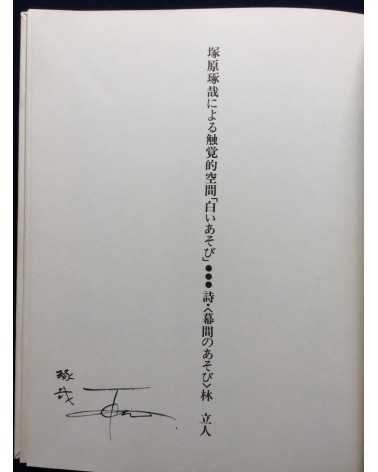 塚原琢哉による触覚的空間「白いあそび」●●●詩・〈幕間のあそび〉林　立人
琢哉